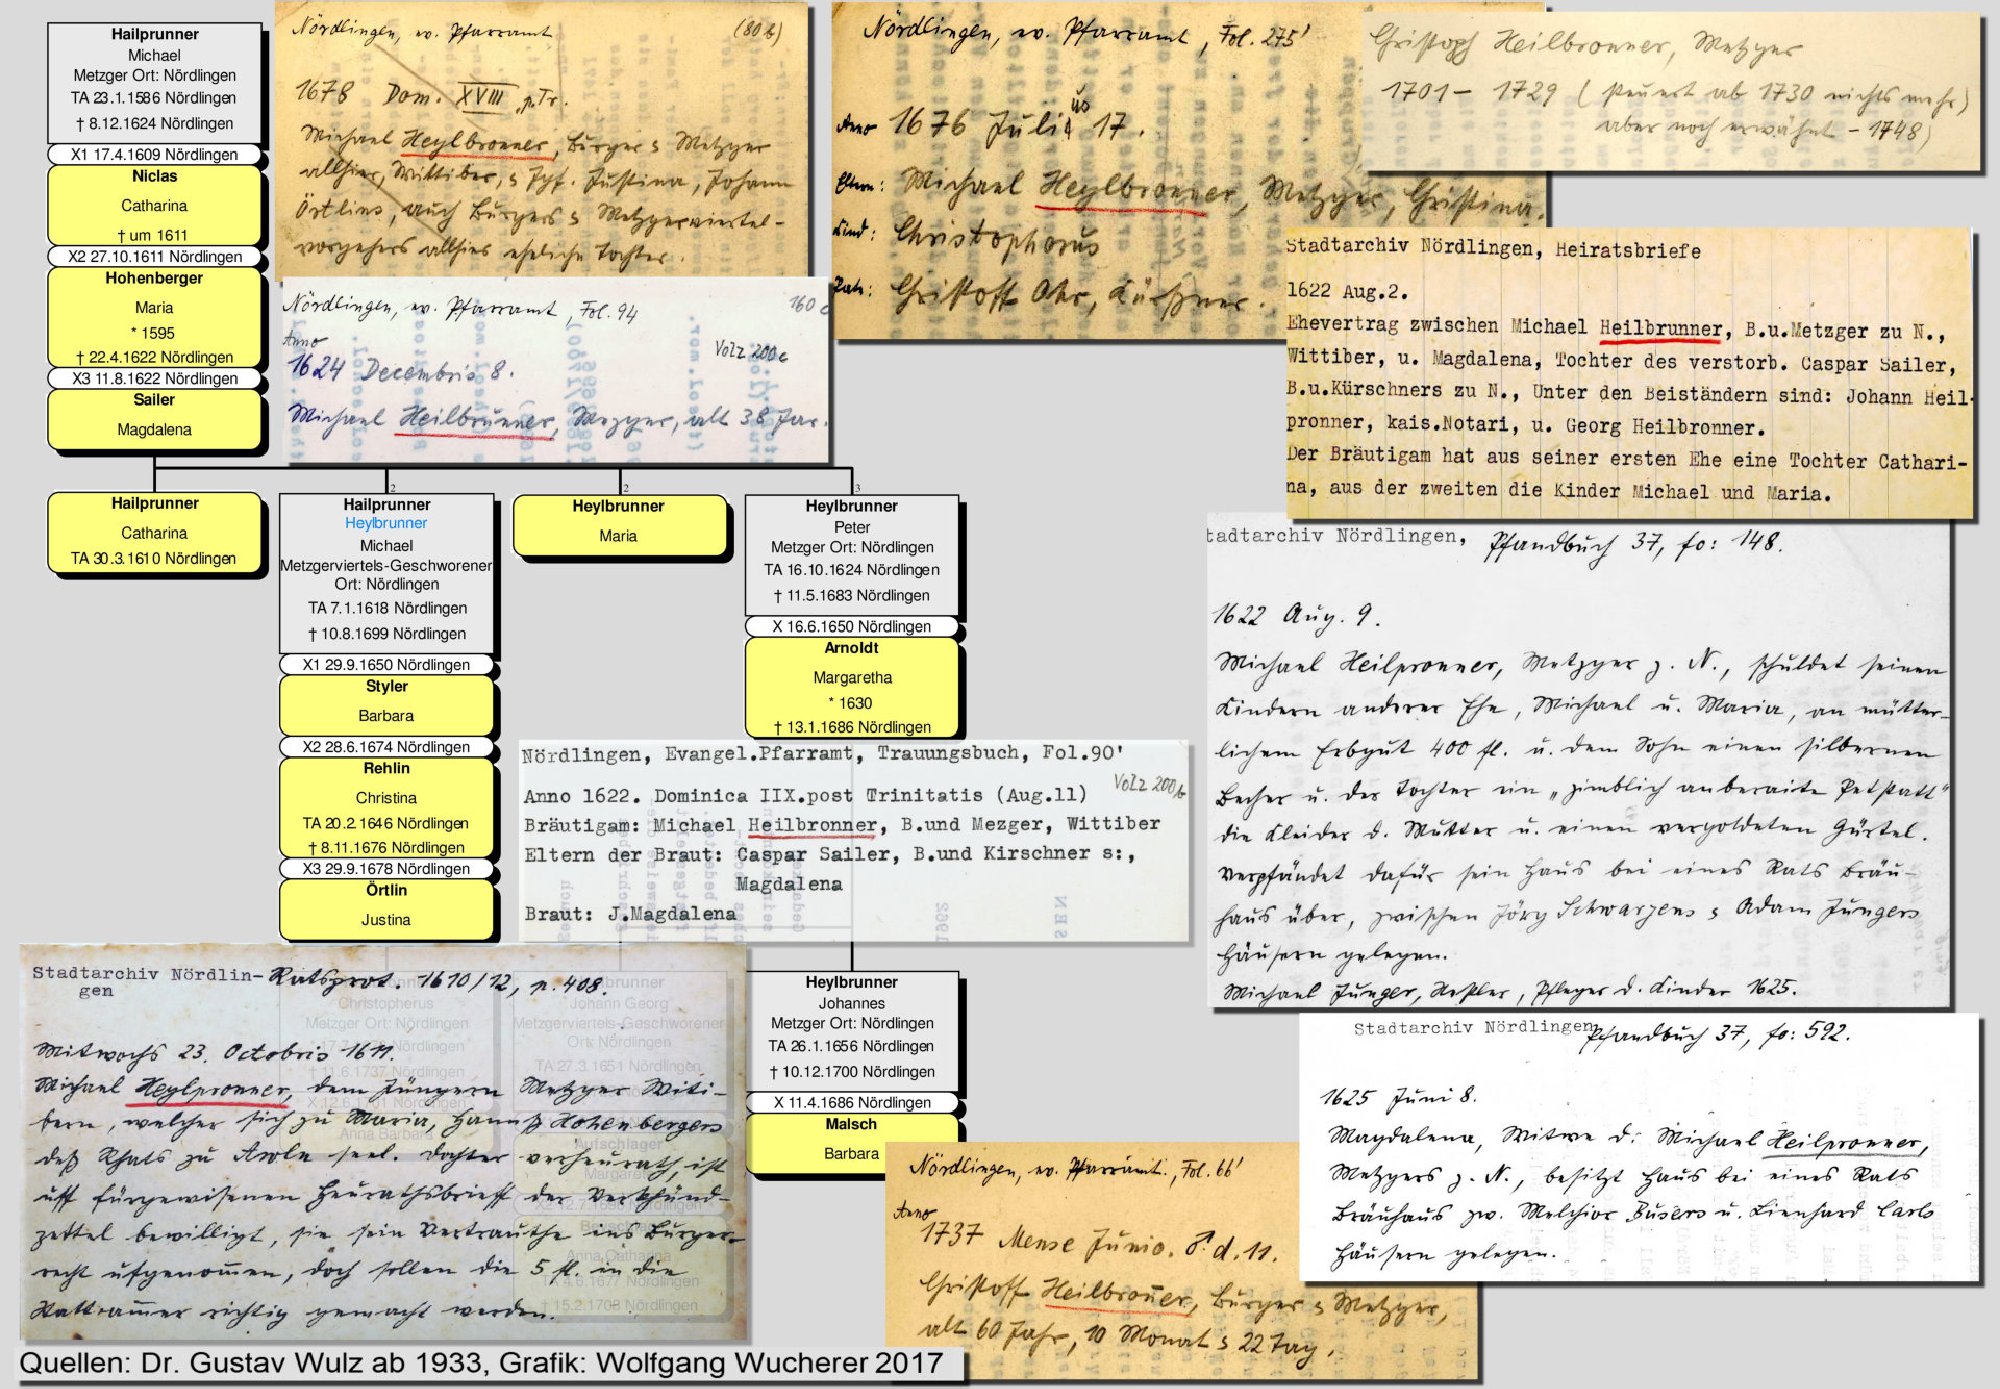 Hailprunner
Michael
Metzger Ort: Nördlingen
TA 23.1.1586 Nördlingen
† 8.12.1624 Nördlingen
X1 17.4.1609 Nördlingen
Niclas
Catharina
† um 1611
X2 27.10.1611 Nördlingen
Hohenberger
Maria
* 1595
† 22.4.1622 Nördlingen
X3 11.8.1622 Nördlingen
Sailer
Magdalena
Nördlingen, ev. Pfarramt (80 b)
1678 Dom. XVIII p. Tr.
Michael Heylbronner, Bürger & Metzger
allhier, Wittiber, & Jgf. Justina, Johann
Örtlins, auch Bürgers & Metzgerviertel-
vorgehers allhies eheliche Tochter.
Nördlingen, ev. Pfarramt, Fol. 94 160
Volz 200 c
Anno
1624 Decembris 8.
Michael Heilbrunner, Metzger, alt 38 Jar.
Nördlingen, ev. Pfarramt, Fol. 275'
Anno 1676 Julius 17.
Eltern: Michael Heylbronner, Metzger, Christina.
Kind: Christophorus
Pate: Christoff Ohr, Kürssner.
Christoph Heilbronner, Metzger
1701 - 1729 (steuert ab 1730 nichts mehr)
aber noch erwähnt - 1748)
Stadtarchiv Nördlingen, Heiratsbriefe
1622 Aug.2.
Ehevertrag zwischen Michael Heilbrunner, B.u.Metzger zu N.,
Wittiber, u. Magdalena, Tochter des verstorb. Caspar Sailer,
B.u.Kürschners zu N., Unter den Beiständern sind: Johann Heil-
pronner, kais.Notari, u. Georg Heilbronner.
Der Bräutigam hat aus seiner ersten Ehe eine Tochter Cathari-
na, aus der zweiten die Kinder Michael und Maria.
Hailprunner
Catharina
TA 30.3.1610 Nördlingen
2
Hailprunner
Heylbrunner
Michael
Metzgerviertels-Geschworener
Ort: Nördlingen
TA 7.1.1618 Nördlingen
† 10.8.1699 Nördlingen
X1 29.9.1650 Nördlingen
Styler
Barbara
X2 28.6.1674 Nördlingen
Rehlin
Christina
TA 20.2.1646 Nördlingen
† 8.11.1676 Nördlingen
X3 29.9.1678 Nördlingen
Örtlin
Justina
2
Heylbrunner
Maria
3
Heylbrunner
Peter
Metzger Ort: Nördlingen
TA 16.10.1624 Nördlingen
† 11.5.1683 Nördlingen
X 16.6.1650 Nördlingen
Arnoldt
Margaretha
* 1630
† 13.1.1686 Nördlingen
Stadtarchiv Nördlingen, Pfandbuch 37, fo: 148.
1622 Aug. 9.
Michael Heilpronner, Metzger z. N., schuldet seinen
Kindern anderer Ehe, Michael u. Maria, an mütter-
lichem Erbgut 400 fl. u. dem Sohn einen silbernen
Becher u. der Tochter ein „zimblich anberaite Petstatt"
die Kleider d. Mutter u. einen vergoldeten Gürtel.
Verpfändet dafür sein Haus bei eines Rats Bräu-
haus über, zwischen Jörg Schwarzens & Adam Jüngers
Häusern gelegen.
Michael Junger, Kestler, Pfleger d. Kinder 1625.
Nördlingen, Evangel.Pfarramt, Trauungsbuch, Fol.90'
Volz 200 b
Anno 1622. Dominica IIX.post Trinitatis (Aug.11)
Bräutigam: Michael Heilbronner, B.und Mezger, Wittiber
Eltern der Braut: Caspar Sailer, B.und Kirschner s:,
Magdalena
Braut: J.Magdalena
Stadtarchiv Nördlin- Ratsprot. 1610/12, p. 408.
gen
Mitwochs 23. Octobris 1611.
Michael Heylpronner, dem Jüngern Metzger Witi-
bern, welcher sich zu Maria, Hannß Hohenbergers
deß Rhats zu seel. Dochter verheurath, ist
uff fürgewisenen Heurathsbrieff der Verkhünd-
zettel bewilligt, sie sein Vertrauthe ins Burger-
recht ufgenomen, doch sollen die 5 fl. in die
richtig gemacht werden.
Heylbrunner
Johannes
Metzger Ort: Nördlingen
TA 26.1.1656 Nördlingen
† 10.12.1700 Nördlingen
X 11.4.1686 Nördlingen
Malsch
Barbara
Christopherus
Metzger Ort: Nördlingen
† 11.6.1737 Nördlingen
Anna Barbara
Johann Georg
Metzgerviertels-Geschworener
Ort: Nördlingen
TA 27.3.1651 Nördlingen
Aufschlager
Anna Catharina
† 15.2.1708 Nördlingen
Nördlingen, ev. Pfarramt, Fol. 66'
Anno
1737 Mense Junio. d. 11.
Christoff Heilbroner, Bürger & Metzger,
alt 60 Jahr, 10 Monat & 22 Tag.
Stadtarchiv Nördlingen Pfandbuch 37, fo: 592.
1625 Juni 8.
Magdalena, Witwe d. Michael Heilpronner,
Metzgers z. N., besitzt Haus bei eines Rats
Bräuhaus zw. Melchior Busers u. Lienhard Carls
Häusern gelegen.
Quellen: Dr. Gustav Wulz ab 1933, Grafik: Wolfgang Wucherer 2017